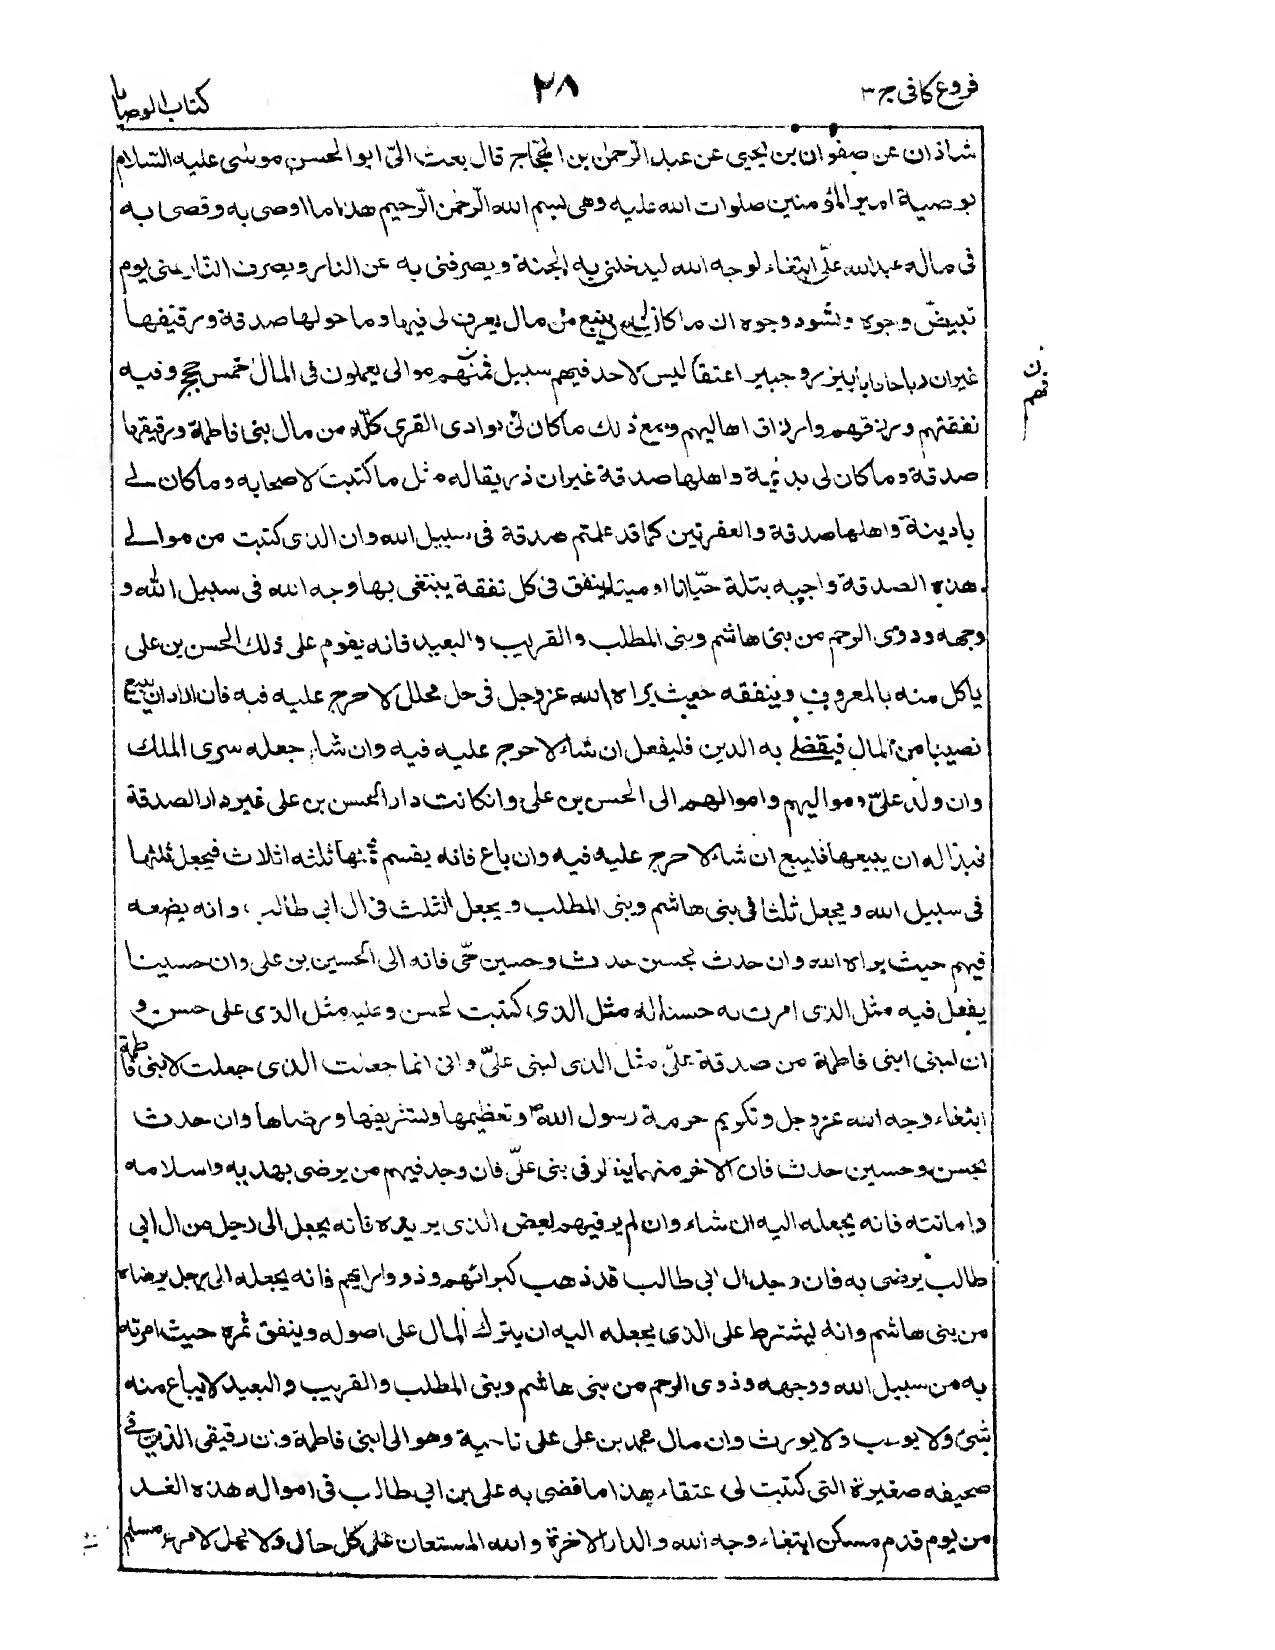 فروع كافى ج ٣
٢٨
كتاب الوصايا
شاذان عن صفوان بن يحيى عن عبد الرحمٰن بن الحجّاج قال بعث الىّ ابو الحسن موسٰى عليه السّلام
بوصية امير المؤمنين صلوات الله عليه وهى بسم الله الرّحمٰن الرّحيم هذا ما اوصى به وقضى به
فى ماله عبد الله علىّ ابتغاء لوجه الله ليدخلنى به الجنة ويصرفنى به عن النار ويصرف النّار عنى يوم
تبيضّ وجوه وتسّود وجوه ان ما كان لى ينبع من مال يعرف لى فيها وما حولها صدقة ورقيقها
غير ان رباحا وابا نيزر وجبير اعتقا ليس لاحد فيهم سبيل فمنهم موالى يعملون فى المال خمس حجج وفيه
نفقتهم ورزقهم وارزاق اهاليهم ومع ذلك ما كان لى بوادى القرى كلّه من مال بنى فاطمة ورقيقها
صدقة وما كان لى بديمة واهلها صدقة غير ان زريقا له مثل ما كتبت لاصحابه وما كان لے
بادينة واهلها صدقة والعفرتين كما قد علمتم صدقة فى سبيل الله وان الذى كتبت من موالے
هذه الصدقة واجبه بتلة حيّا انا او ميتا ينفق فى كل نفقة يبتغى بها وجه الله فى سبيل الله و
وجهه وذوى الرحم من بنى هاشم وبنى المطلب والقريب والبعيد فانه يقوم على ذلك الحسن بن على
ياكل منه بالمعروف وينفقه حيث يراه الله عزوجل فى حل محلل لا حرج عليه فيه فان اراد ان يبيع
نصيبا من المال فيقضے به الدين فليفعل ان شاء لا حرج عليه فيه وان شاء جعله سرى الملك
وان ولد علىّ ومواليهم واموالهم الى الحسن بن على وان كانت دار الحسن بن على غير دار الصدقة
فبدا له ان يبيعها فليبع ان شاء لا حرج عليه فيه وان باع فانه يقسم ثمنها ثلثه اثلاث فيجعل ثلثها
فى سبيل الله ويجعل ثلثا فى بنى هاشم وبنى المطلب ويجعل الثلث فى ال ابى طالب وانه يضعه
فيهم حيث يراه الله وان حدث بحسن حدث وحسين حىّ فانه الى الحسين بن على وان حسينا
يفعل فيه مثل الذى امرت به حسنا له مثل الذى كتبت لحسن وعليه مثل الذى على حسن و
ان لبنى ابنى فاطمة من صدقة علىّ مثل الذى لبنى علىّ وانى انما جعلت الذى جعلت لابنى فاطمة
ابتغاء وجه الله عزوجل وتكريم حرمة رسول اللهص وتعظيمها وتشريفها ورضاها وان حدث
بحسن وحسين حدث فان الاخر منهما ينظر فى بنى علىّ فان وجد فيهم من يرضى بهديه واسلامه
وامانته فانه يجعله اليه ان شاء وان لم ير فيهم بعض الذى يريده فانه يجعل الى رجل من ال ابى
طالب يرضى به فان وجد ال ابى طالب قد ذهب كبرائهم وذووارايهم فانه يجعله الى رجل يرضاه
من بنى هاشم وانه يشترط على الذى يجعله اليه ان يترك المال على اصوله وينفق ثمره حيث امرته
به من سبيل الله ووجهه وذوى الرحم من بنى هاشم وبنى المطلب والقريب والبعيد لا يباع منه
شئ ولا يوهب ولا يورث وان مال محمد بن على على ناحية وهو الى ابنى فاطمة وان رقيقى الذين فى
صحيفه صغيرة التى كتبت لى عتقاء هذا ما قضى به على بن ابى طالب فى امواله هذه الغد
من يوم قدم مسكن ابتغاء وجه الله والدار الاخرة والله المستعان على كل حال ولا يحل لامرء مسلم